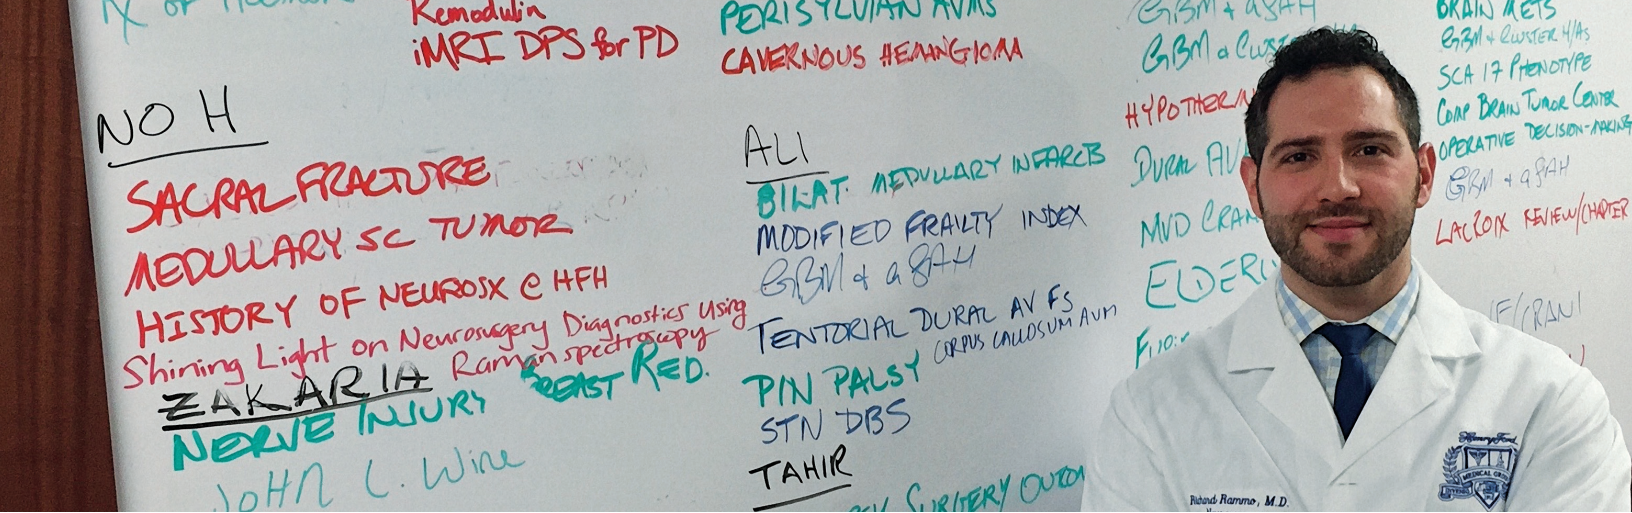 Remodulin
iMRI DPS for PD
NO H
SACRAL FRACTURE
MEDULLARY SC TUMOR
HISTORY OF NEUROSX @ HFH
Shining Light on Neurosurgery Diagnostics Using
Raman spectroscopy
ZAKARIA
NERVE INJURY BREAST RED.
JOHN L. Wine
PERISYLVIAN AVMS
CAVERNOUS HEMANGIOMA
ALI
BILAT. MEDULLARY INFARCTS
MODIFIED FRAILTY INDEX
GBM & aSAH
TENTORIAL DURAL AV FS
CORPUS CALLOSUM AVM
PIN PALSY
STN DBS
TAHIR
SURGERY
GBM & aSAH
GBM &
DURAL
MVD
BRAIN METS
GBM & CLUSTER H/As
SCA 17 PHENOTYPE
COMP BRAIN TUMOR CENTER
OPERATIVE DECISION-MAKING
GBM & aSAH
LACROIX REVIEW/CHAPTER
Henry Ford
MEDICAL GROUP
Richard Rammo, M.D.